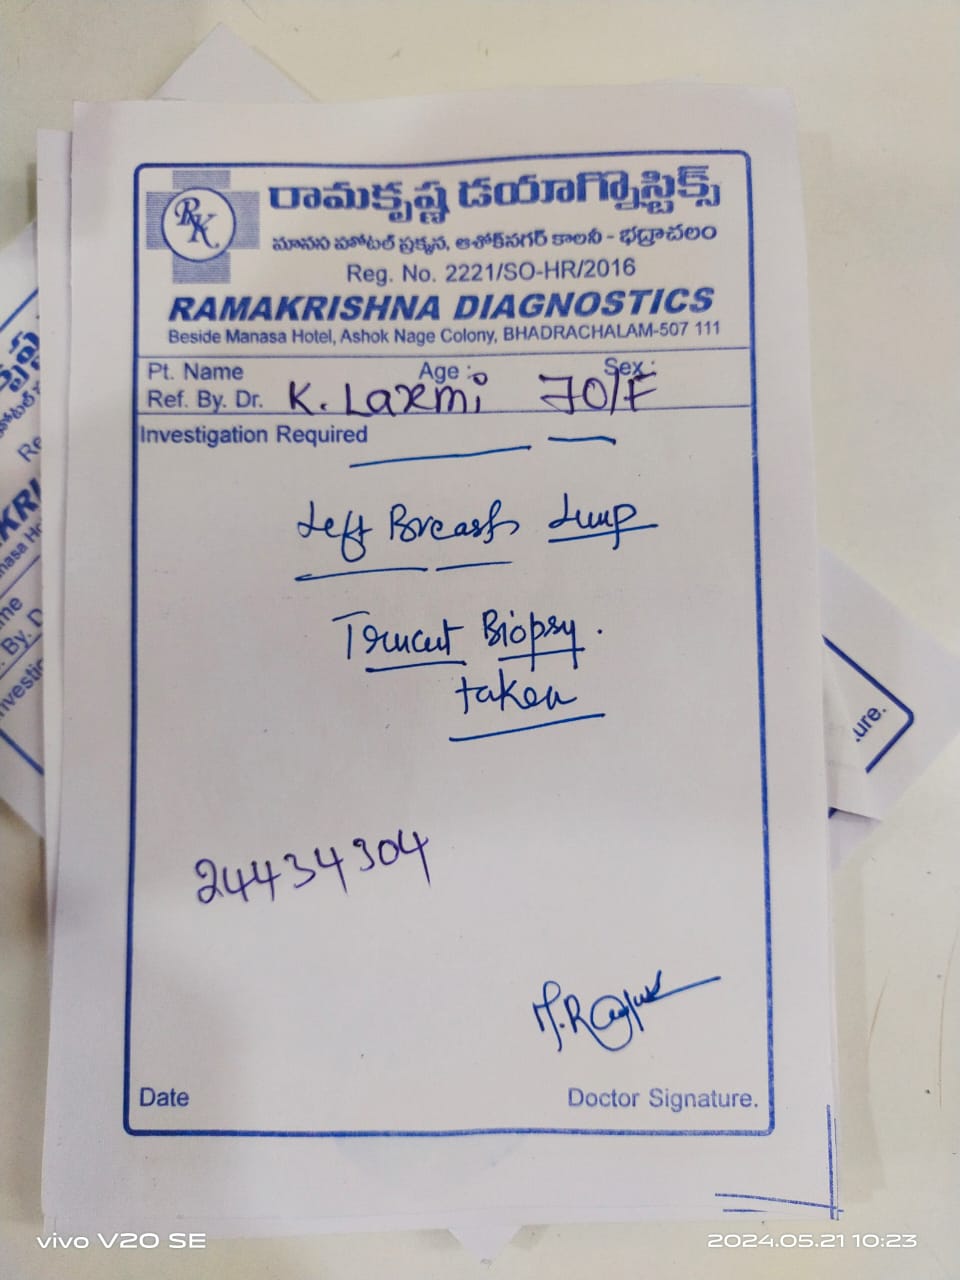 RK
రామకృష్ణ డయాగ్నొస్టిక్స్
మానస హోటల్ ప్రక్కన, అశోక్‌నగర్ కాలనీ - భద్రాచలం
Reg. No. 2221/SO-HR/2016
RAMAKRISHNA DIAGNOSTICS
Beside Manasa Hotel, Ashok Nage Colony, BHADRACHALAM-507 111
Pt. Name Age : Sex :
Ref. By. Dr. K. Laxmi 70/F
Investigation Required
Left Breast Lump
Trucut Biopsy.
taken
24434304
Date Doctor Signature.
ure.
vivo V20 SE 2024.05.21 10:23